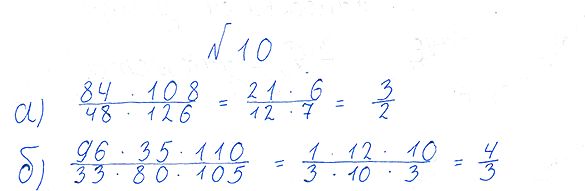 № 10
а) 84 · 108 / 48 · 126 = 21 · 6 / 12 · 7 = 3/2
б) 96 · 35 · 110 / 33 · 80 · 105 = 1 · 12 · 10 / 3 · 10 · 3 = 4/3